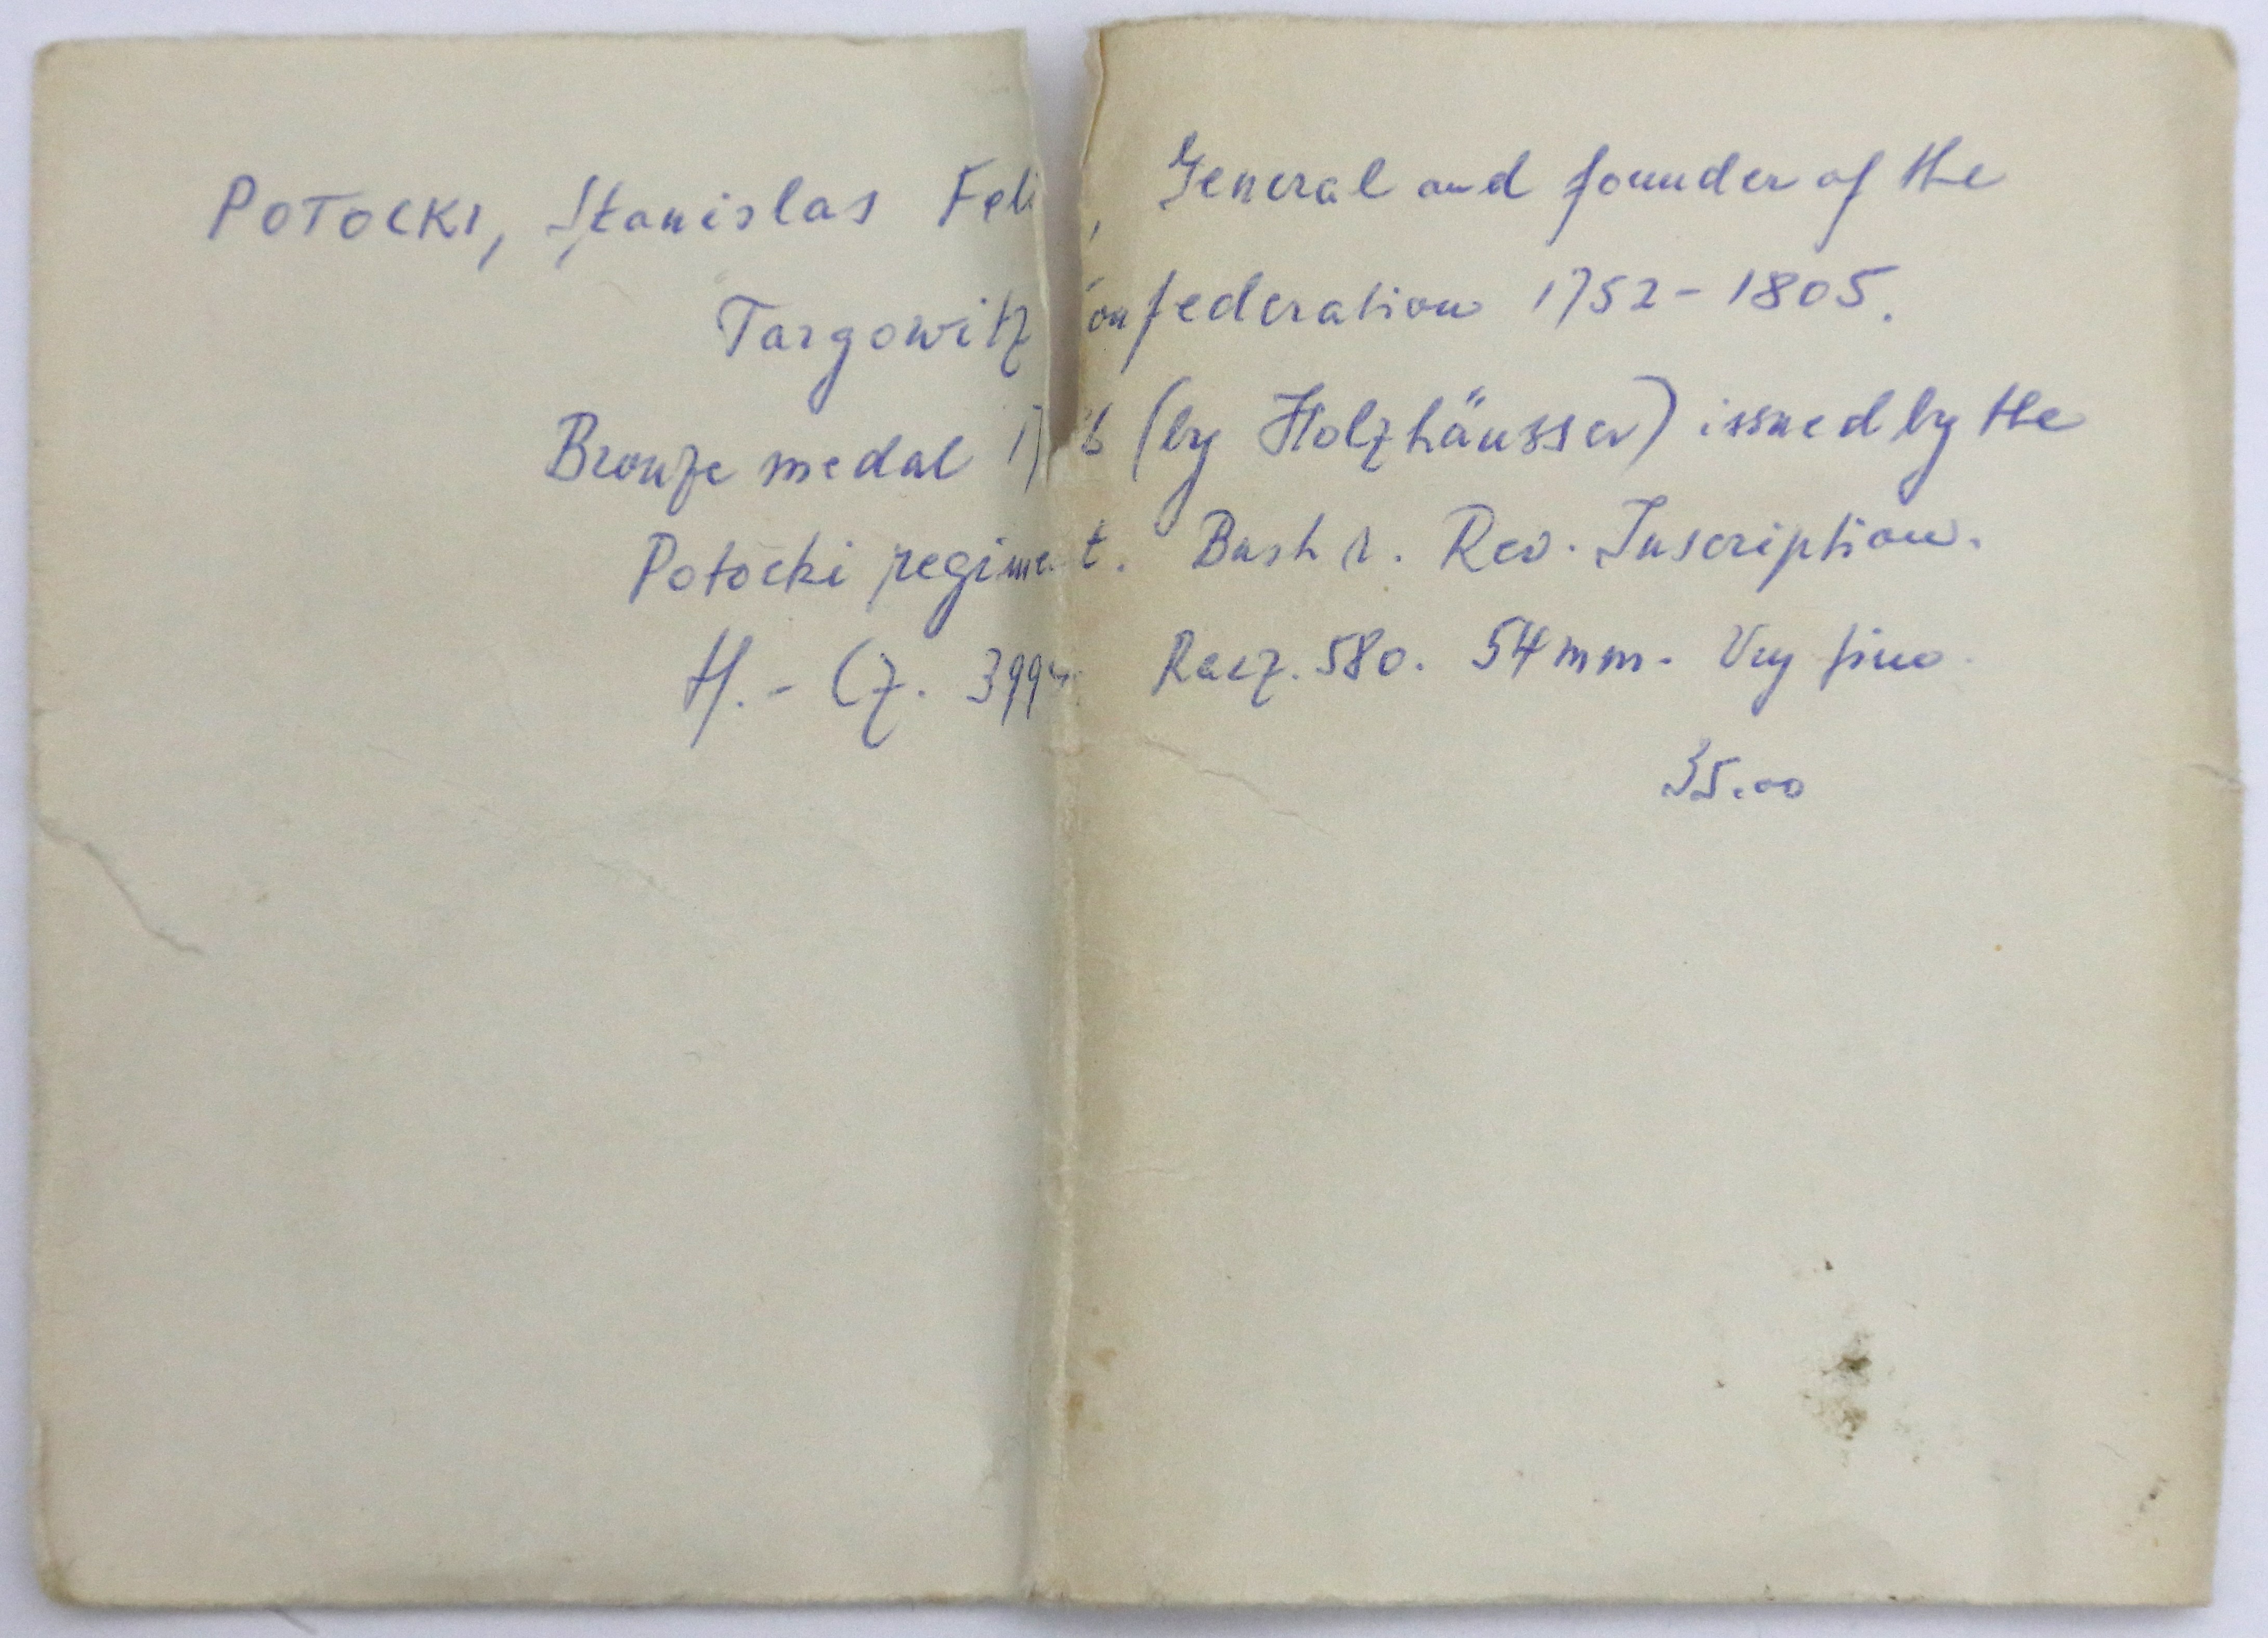 POTOCKI, Stanislas Feli , General and founder of the
Targowitz Confederation 1752-1805.
Bronze medal (by Holzhäusser) issued by the
Potocki regiment. Bust r. Rev. Inscription.
H.- Cz. Racz. 580. 54 mm. Very fine
35.00